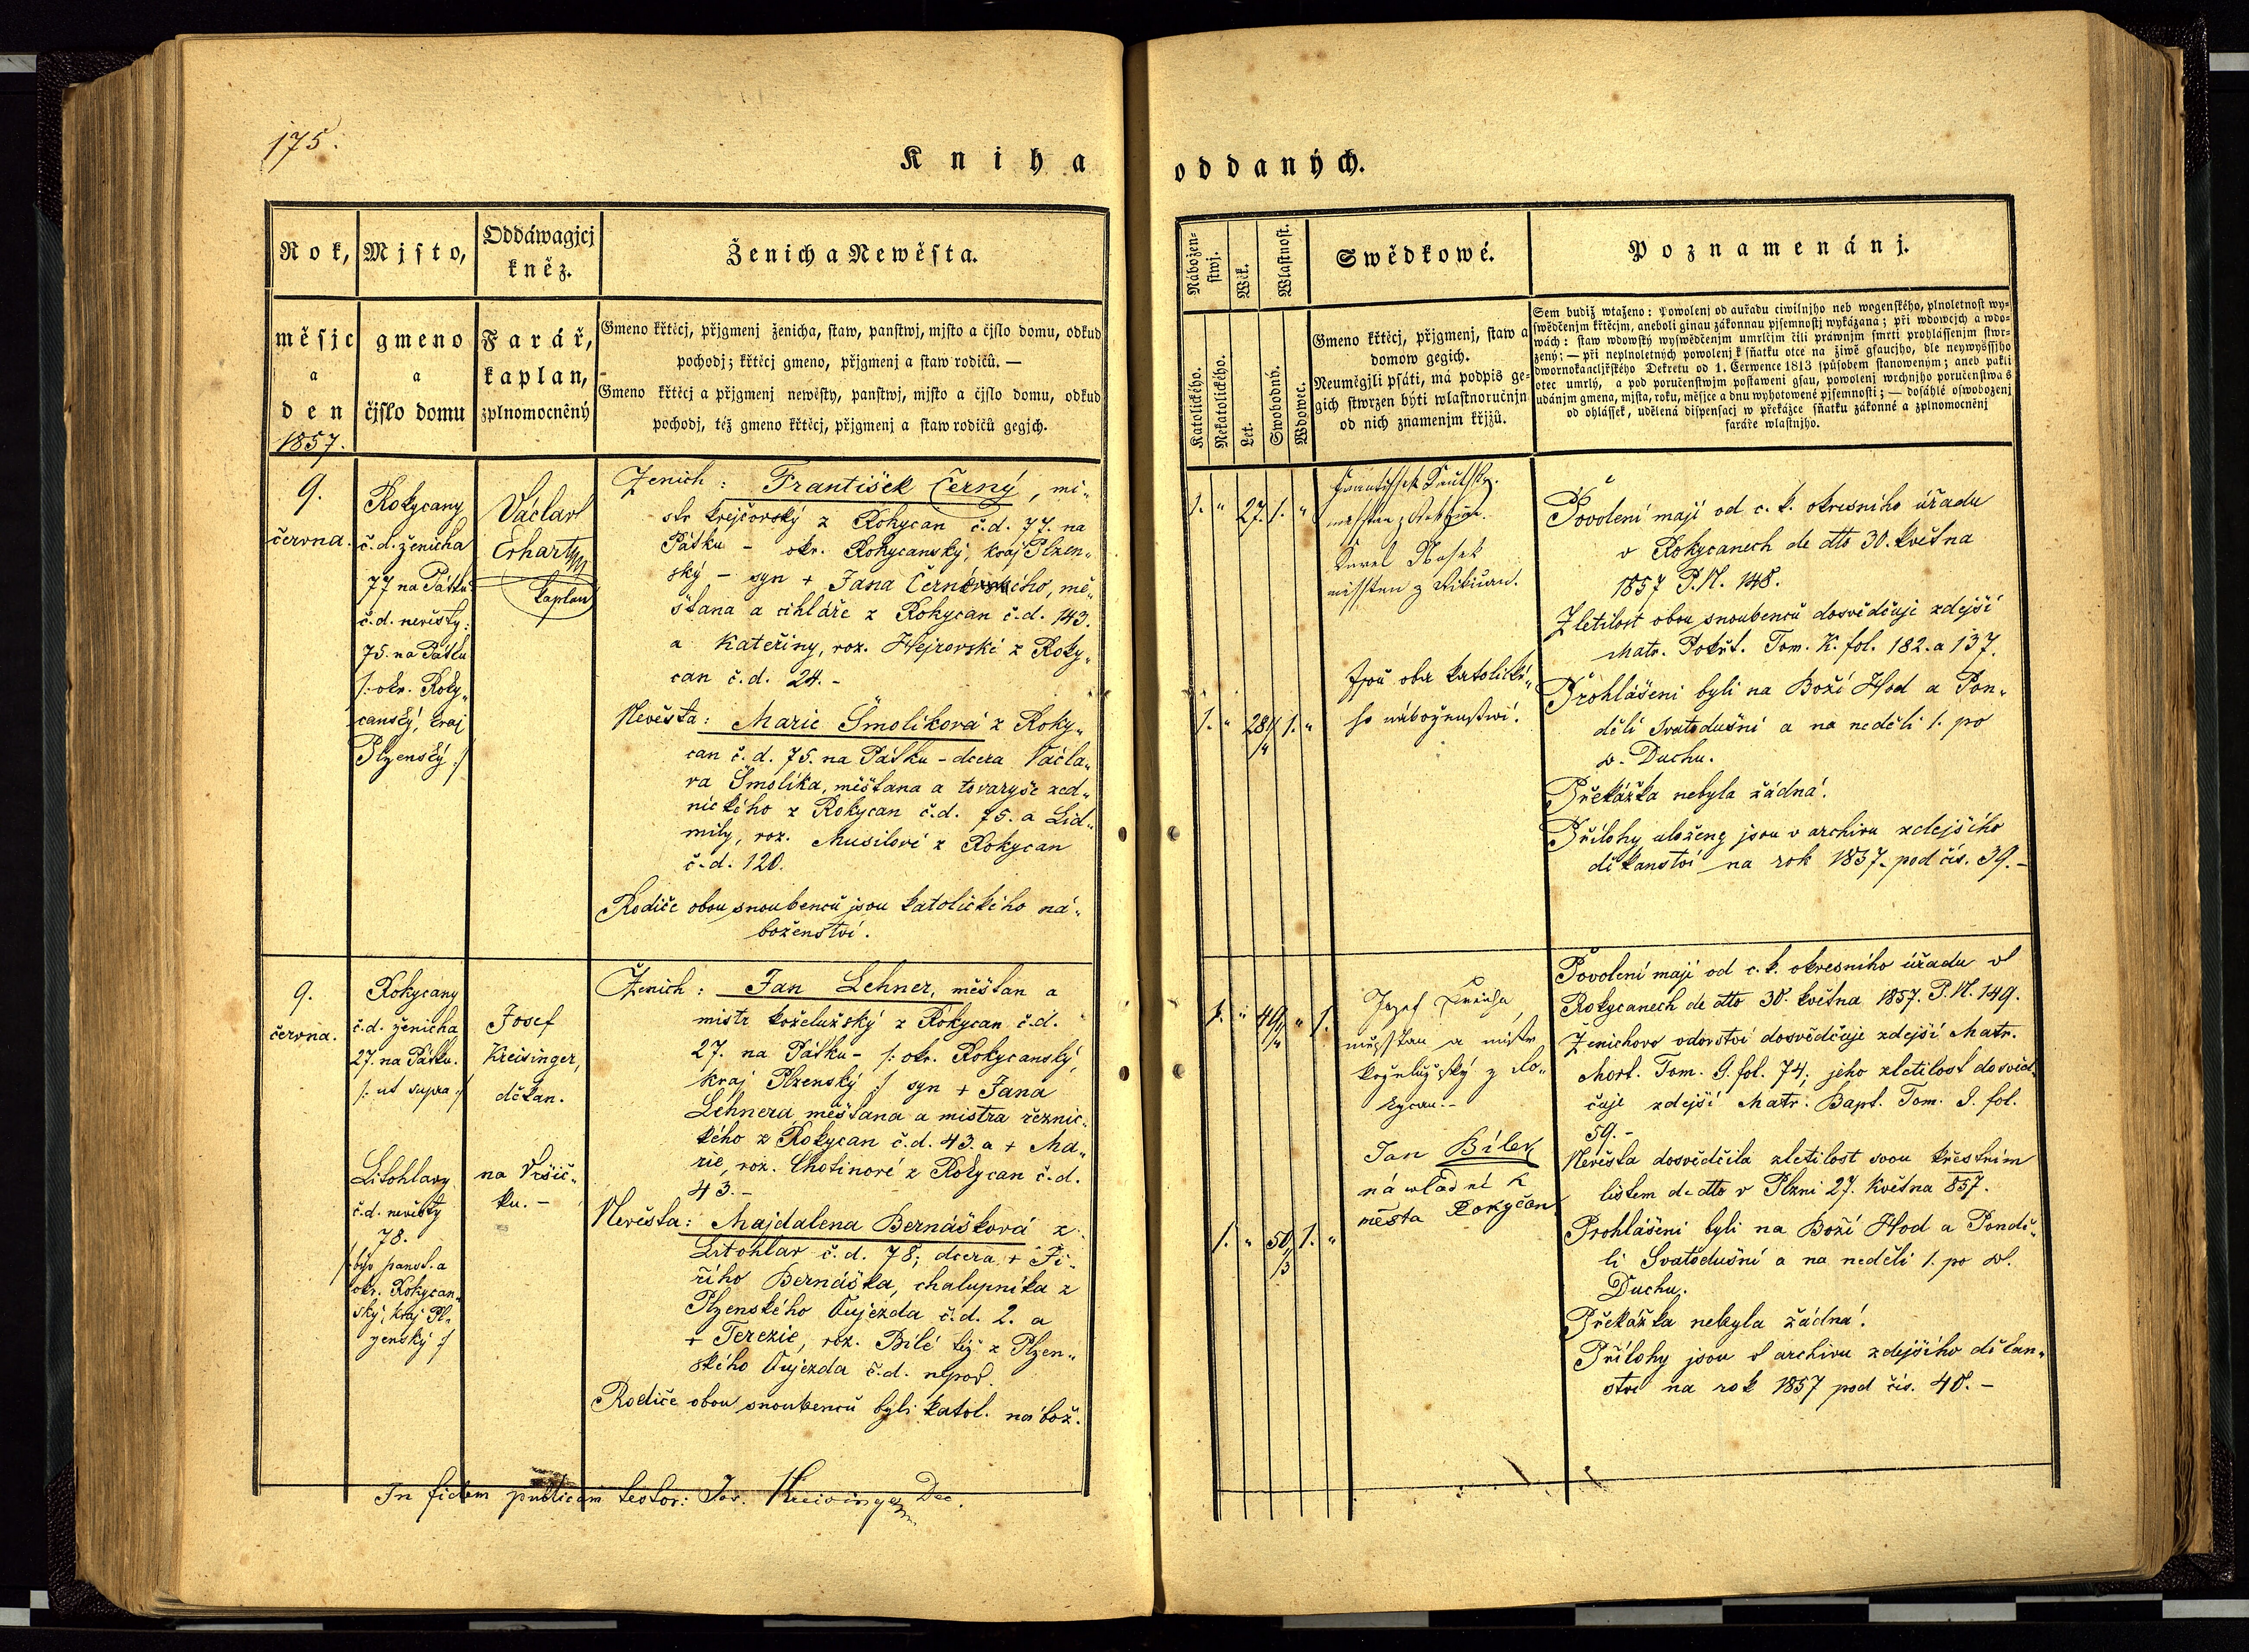 175.
Kniha
oddaných.
Rok,
měsjc
a
den
1857.
Mjsto,
gmeno
a
čjslo domu
Oddáwagjcj
kněz.
Farář,
kaplan,
zplnomocněný
Ženich a Newěsta.
Gmeno křtěcj, přjgmenj ženicha, staw, panstwj, mjsto a čjslo domu, odkud
pochodj; křtěcj gmeno, přjgmenj a staw rodičů. —
Gmeno křtěcj a přjgmenj newěsty, panstwj, mjsto a čjslo domu, odkud
pochodj, též gmeno křtěcj, přjgmenj a staw rodičů gegjch.
Nábožen-
stwj.
Katolického.
Nekatolického.
Wěk.
Let.
Wlastnost.
Swobodný.
Wdowec.
Swědkowé.
Gmeno křtěcj, přjgmenj, staw a
domow gegich.
Neumégjli psáti, má podpis ge-
gich stwrzen býti wlastnoručnjm
od nich znamenjm křjžů.
Poznamenánj.
Sem budiž wtaženo: Powolenj od auřadu ciwilnjho neb wogenského, plnoletnost wy-
swědčenjm křtěcjm, aneboli ginau zákonnau pjsemnostj wykázana; při wdowcjch a wdo-
wách: staw wdowský wyswědčenjm umrlčjm čili práwnjm smrti prohlássenjm stwr-
zený; — při neplnoletných powolenj k sňatku otce na žiwě gsaucjho, dle neywyššjho
dwornokancljřského Dekretu od 1. Čerwence 1813 způsobem stanoweným; aneb pakli
otec umrlý, a pod poručenstwjm postaweni gsau, powolenj wrchnjho poručenstwa s
udánjm gmena, mjsta, roku, měsjce a dnu wyhotowené pjsemnosti; — dosáhlé oswobozenj
od ohlássek, udělená dispensacj w překážce sňatku zákonné a zplnomocněnj
faráře wlastnjho.
9.
června.
Rokycany
č.d. ženicha
77 na Pátku
č.d. nevěsty:
75. na Pátku
/: okr. Roky„
canský, kraj
Plzenský :/
Václav
Erhart
kaplan
Ženich: František Černý, mi„
str krejčovský z Rokycan č.d. 77. na
Pátku – okr. Rokycanský, kraj Plzen„
ský – syn + Jana Černého, mě„
šťana a cihláře z Rokycan č.d. 143.
a Kateřiny, roz. Hejrovské z Roky„
can č.d. 24. –
Nevěsta: Marie Šmolíková z Roky„
can č.d. 75. na Pátku – dcera Václa„
va Šmolíka, měšťana a tovaryše zed„
nického z Rokycan č.d. 75. a Lid„
mily, roz. Musilové z Rokycan
č.d. 120.
Rodiče obou snoubenců jsou katolického ná„
boženství.
1. „ 27. 1. „
měsstan z
Karel Nosek
měsstan z
Jsou oba katolické„
ho náboženstwí.
1. „ 28 1. „
Povolení mají od c.k. okresního úřadu
v Rokycanech de dto 30. května
1857 P.N. 148.
Zletilost obou snoubenců dosvědčuje zdejší
Matr. Pokřt. Tom. K. fol. 182. a 137.
Prohlášeni byli na Boží Hod a Pon„
dělí Svatodušní a na neděli 1. po
sv. Duchu.
Překážka nebyla žádná.
Přílohy uložené jsou v archivu zdejšího
děkanství na rok 1857. pod čís. 39. –
9.
června.
Rokycany
č.d. ženicha
27. na Pátku.
/: ut supra :/
Litohlavy
č.d. nevěsty
78.
býv. panst. a
okr. Rokycan„
ský, kraj Pl„
zenský :/
Josef
Kreisinger,
děkan.
na Vršíč„
ku. –
Ženich: Jan Lehner, měšťan a
mistr koželužský z Rokycan č.d.
27. na Pátku – /: okr. Rokycanský,
kraj Plzenský :/ syn + Jana
Lehnera měšťana a mistra řeznic„
kého z Rokycan č.d. 43. a + Ma„
rie, roz. Chotinové z Rokycan č.d.
43. –
Nevěsta: Majdalena Bernášková z
Litohlav č.d. 78; dcera + Ji„
řího Bernáška, chalupníka z
Plzenského Oujezda č.d. 2. a
+ Terezie, roz. Bílé též z Plzen„
ského Oujezda č.d. nepov.
Rodiče obou snoubenců byli katol. nábož.
1. „ 49 „ 1.
Jozef
měsstan a mistr
koželužský z Ro„
kycan. –
Jan Bílek
náwladní k
města Rokyčan
1. „ 50 1. „
Povolení mají od c.k. okresního úřadu v
Rokycanech de dto 30. května 1857. P.N. 149.
Ženichovo vdovství dosvědčuje zdejší Matr.
Mort. Tom. G. fol. 74; jeho zletilost dosvěd„
čuje zdejší Matr. Bapt. Tom. I. fol.
59. –
Nevěsta dosvědčila zletilost svou křestním
listem de dto v Plzni 27. května 857.
Prohlášeni byli na Boží Hod a Pondě„
lí Svatodušní a na neděli 1. po sv.
Duchu.
Překážka nebyla žádná.
Přílohy jsou v archivu zdejšího děkan„
ství na rok 1857 pod čís. 40. –
In fidem publicam testor: Jos. Kreisinger Dec.